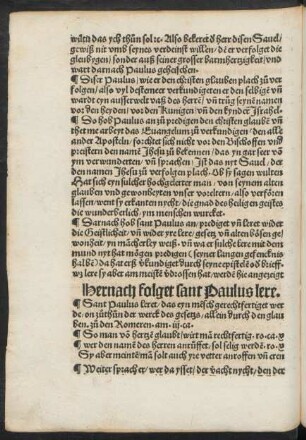 würt das ych thün sol ⁊c. Also bekeret ð herr disen Sauel/
gewiß nit vmb seynes verdeinst willen/ dē er verfolget die
gleubygen/ sonder auß seiner grosser barmhertzigkeit/ vnd
wart darnach Paulus geheischen.
¶ Diser Paulus/ wie er den christen glauben plach zů ver
folgen/ also vyl desteneer verkundigeten er den selbigē vn̄
wardt eyn ausserwelt vaß des herrē/ vn̄ trůg seynē namen
vor den heyden/ vor den Kunigen/ vn̄ den kynder Israhel.
¶ So hob Paulus an zu predigen den christen glaubē vn̄
thet me arbeyt das Euangelium zů verkundigen/ den alle
ander Aposteln/ forchtet sich nicht vor den Bischoffen vnd
preistern den name Jhesu zů bekennen/ das yn gar seer vō
ym verwundertten/ vn̄ sprachen/ Jst das nyt Sauel/ der
den namen Jhesu zů verfolgen plach. Ob sy sagen wulten
Hat sich eyn sulcher hochgelerter man/ von seynem alten
glauben vnd gewonheyten vnser vorelteren/ also verfören
lassen/ went sy erkanten nycht/ die gnad des heiligen geistes
die wunderbetlich/ ym menschen wurcket.
¶ Darnach hob sant Paulus an/ predigt vn̄ leret wider
die Geistlicheit/ vn̄ wider yre lere/ gesetz vn̄ alten bösen ge/
wonheit/ yn mācherley weiß/ vn̄ wa er sulche lere mit dem
mund nyt hat mögen predigen (seyner langen gefencknis
halbē) da hat erß vkundiget durch seyne epistelē oð brieff/
wz lere sy aber am meistē vdrossen hat/ werdē hie angezeigt
Hernach folget sant Paulus lere.
¶ Sant Paulus leret/ das eyn mēsch gerechtfertiget wer
de/ on zůthůn der werck des gesetz/ allein durch den glau
ben/ zů den Romeren. am. iij. ca.
¶ So man vō hertzē glaubt/ wirt mā rechtfertig. ro. ca. x
¶ wer den name des herren anrüffet/ sol selig werdē. ro. x
Sy aber meintē mā solt auch yre vetter anroffen vn̄ eren
¶ Weiter sprach er/ wer da ysset/ der vacht nycht/ den der